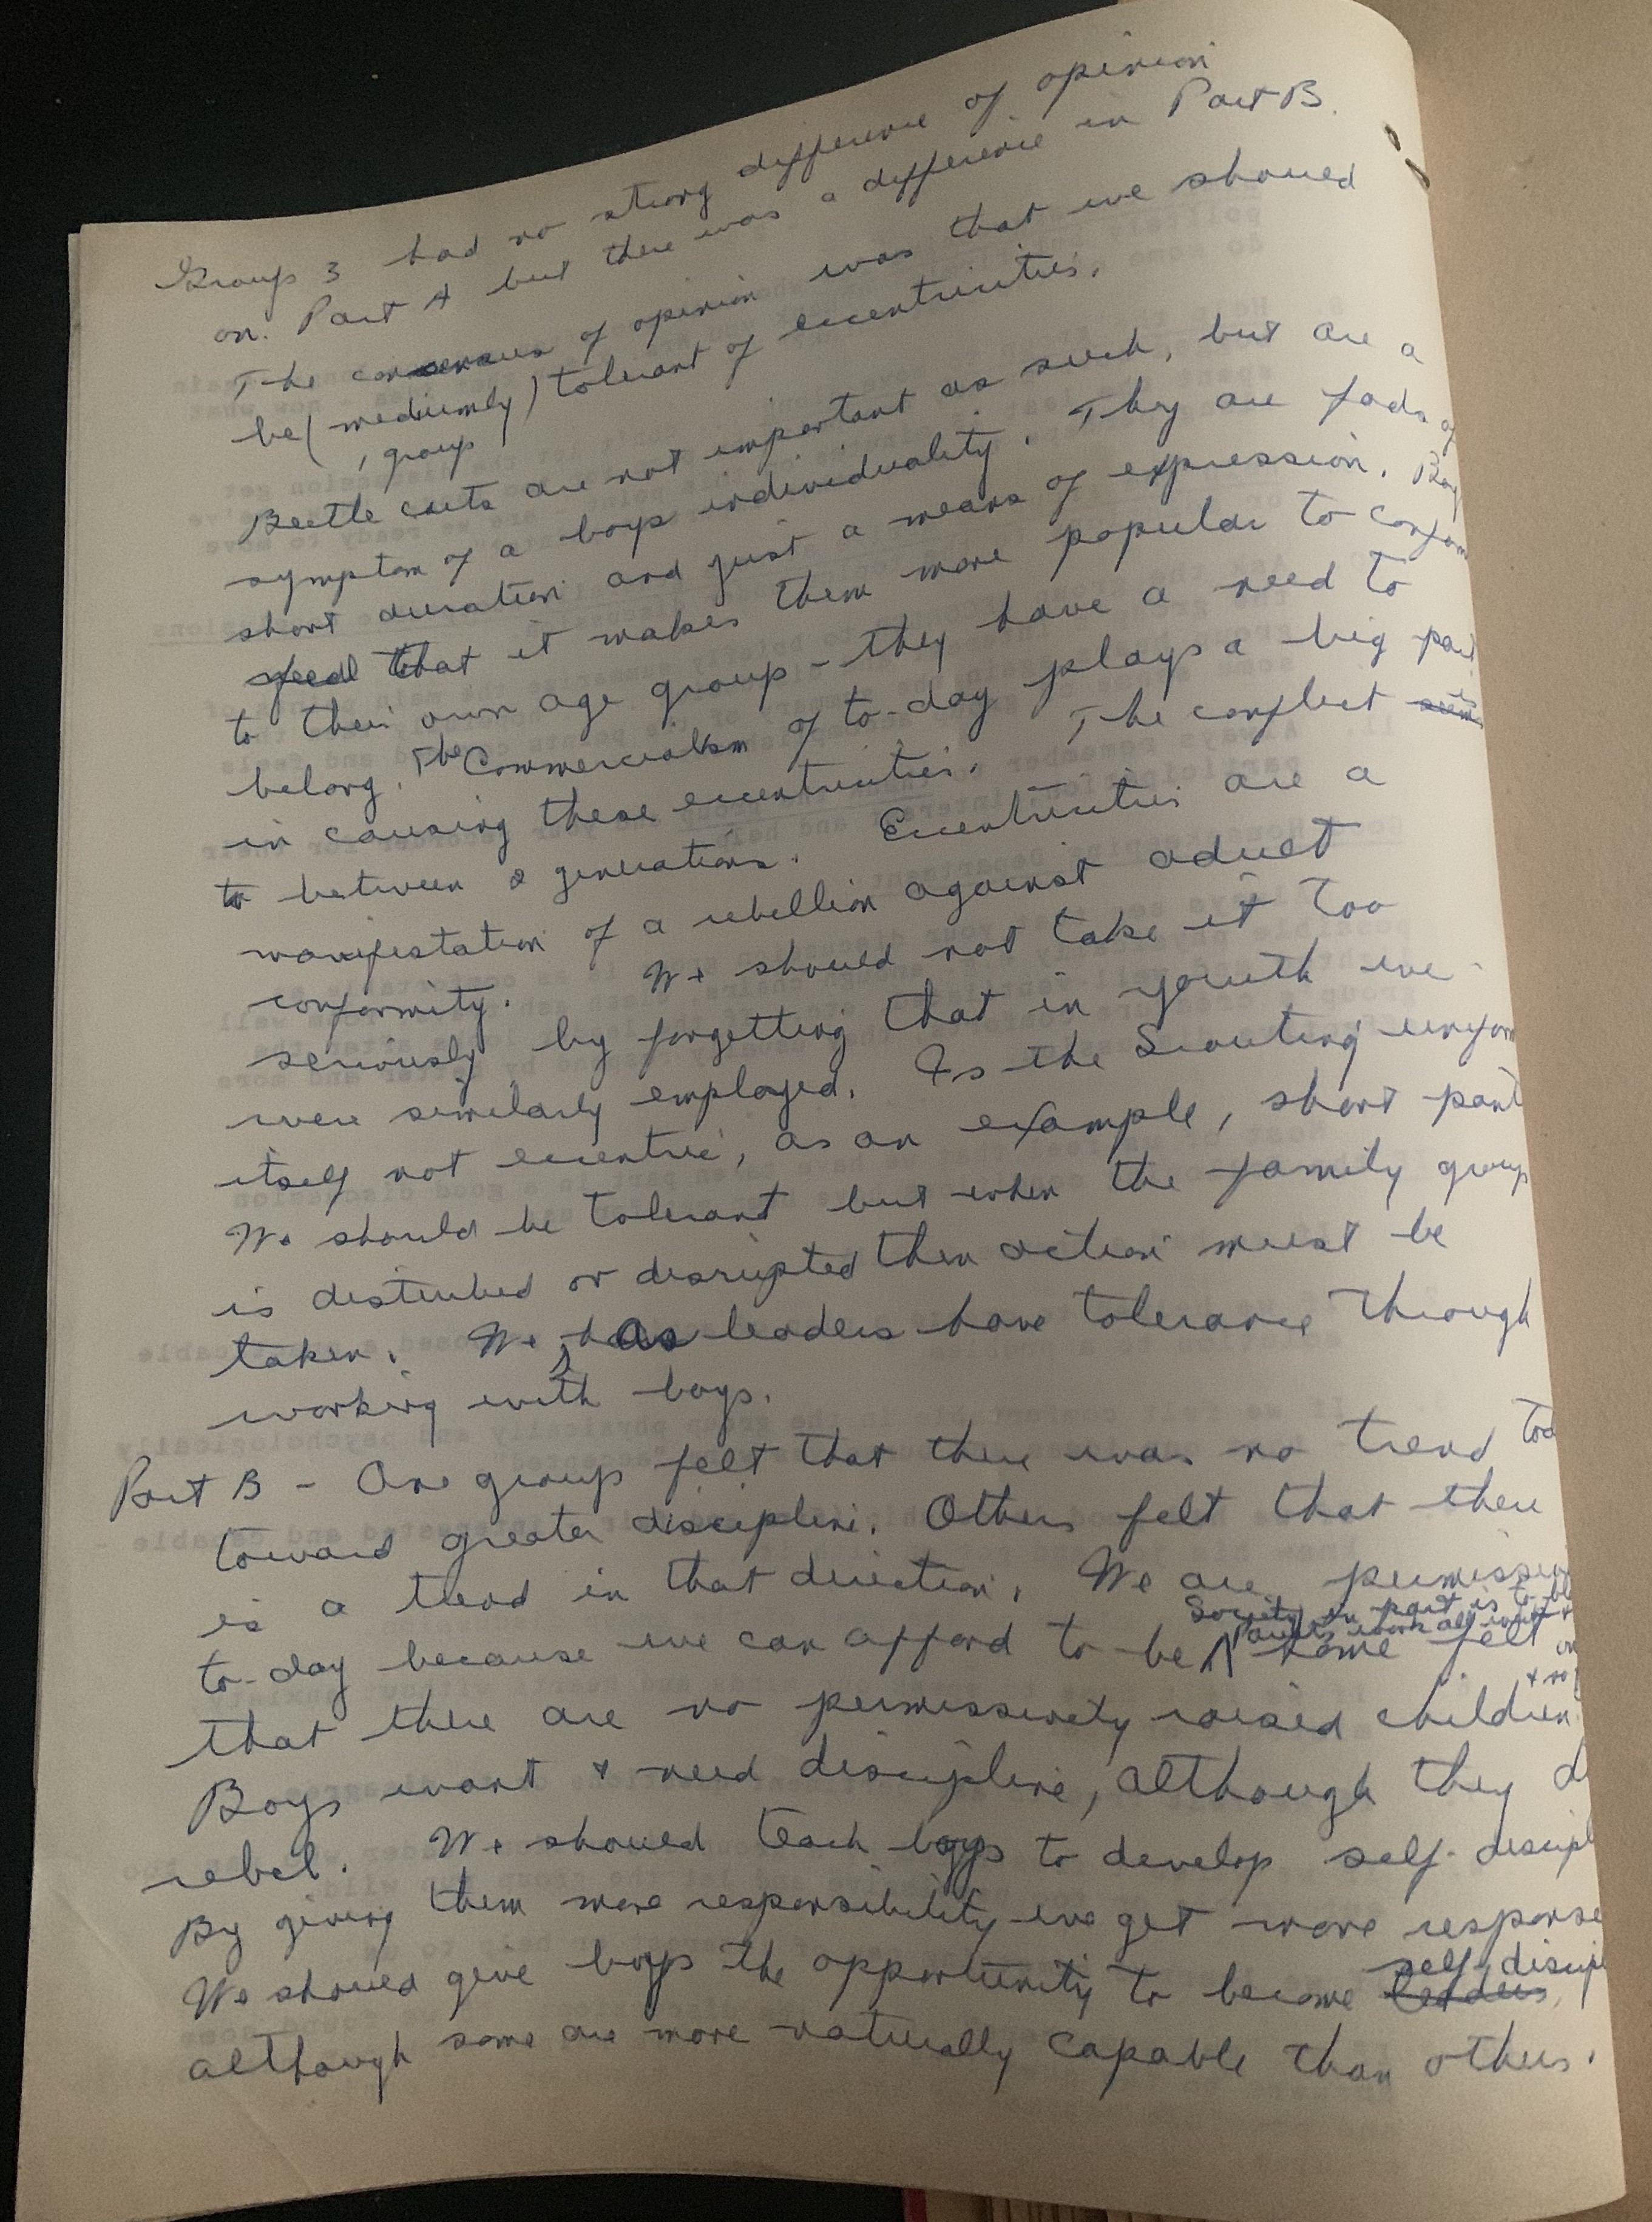 Group 3 had no strong difference of opinion
on Part A but there was a difference in Part B.
The consensus of opinion was that we should
be (mediumly) tolerant of eccentricities.
, group
Beetle cuts are not important as such, but are a
symptom of a boys individuality. They are fads of
short duration and just a means of expression. Boy
feel that it makes them more popular to conform
to their own age group - they have a need to
belong. The Commercialism of to-day plays a big part
in causing these eccentricities. The conflict is
between 2 generations. Eccentricities are a
manifestation of a rebellion against adult
conformity. We should not take it too
seriously, by forgetting that in youth we
were similarly employed. Is the Scouting uniform
itself not eccentric, as an example, short pant
We should be tolerant but when the family group
is disturbed or disrupted then action must be
taken. We, as leaders have tolerance through
working with boys.
Part B - One group felt that there was no trend tod
toward greater discipline. Others felt that there
is a trend in that direction. We are permissiv
Society in part is to bl
Parents work all
to-day because we can afford to be Some felt
& no
that there are no permissively raised children
Boys want & need discipline, although they d
rebel. We should teach boys to develop self-discipl
By giving them more responsibility we get more response
self discipl
We should give boys the opportunity to become leaders,
although some are more naturally capable than others.